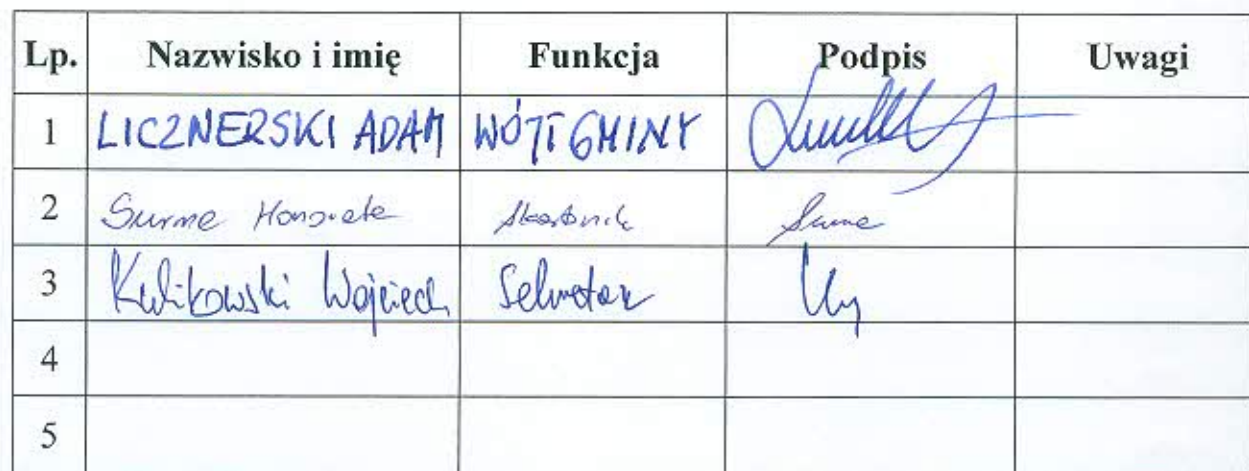 Lp. Nazwisko i imię Funkcja Podpis Uwagi
1 LICZNERSKI ADAM WÓJT GMINY
2 Surma Honorata Skarbnik
3 Kulikowski Wojciech Sekretarz
4
5